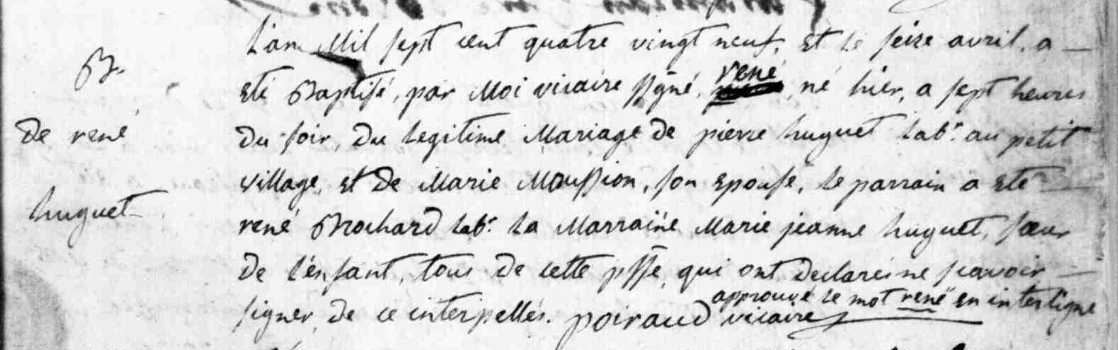 L'an Mil sept cent quatre vingt neuf, et le seize avril, a
B.
eté Baptisé, par Moi vicaire ssigné, rené, né hier, a sept heures
de rené
du soir, du legitime Mariage de pierre huguet lab.r au petit
village, et de Marie Moussion, son epouse, le parrain a eté
huguet
rené Brochard lab.r la Marraine Marie jeanne huguet, sœur
de l'enfant, tous de cette psse, qui ont declaré ne scavoir
signer, de ce interpellés. poiraud vicaire
approuve le mot rené en interligne